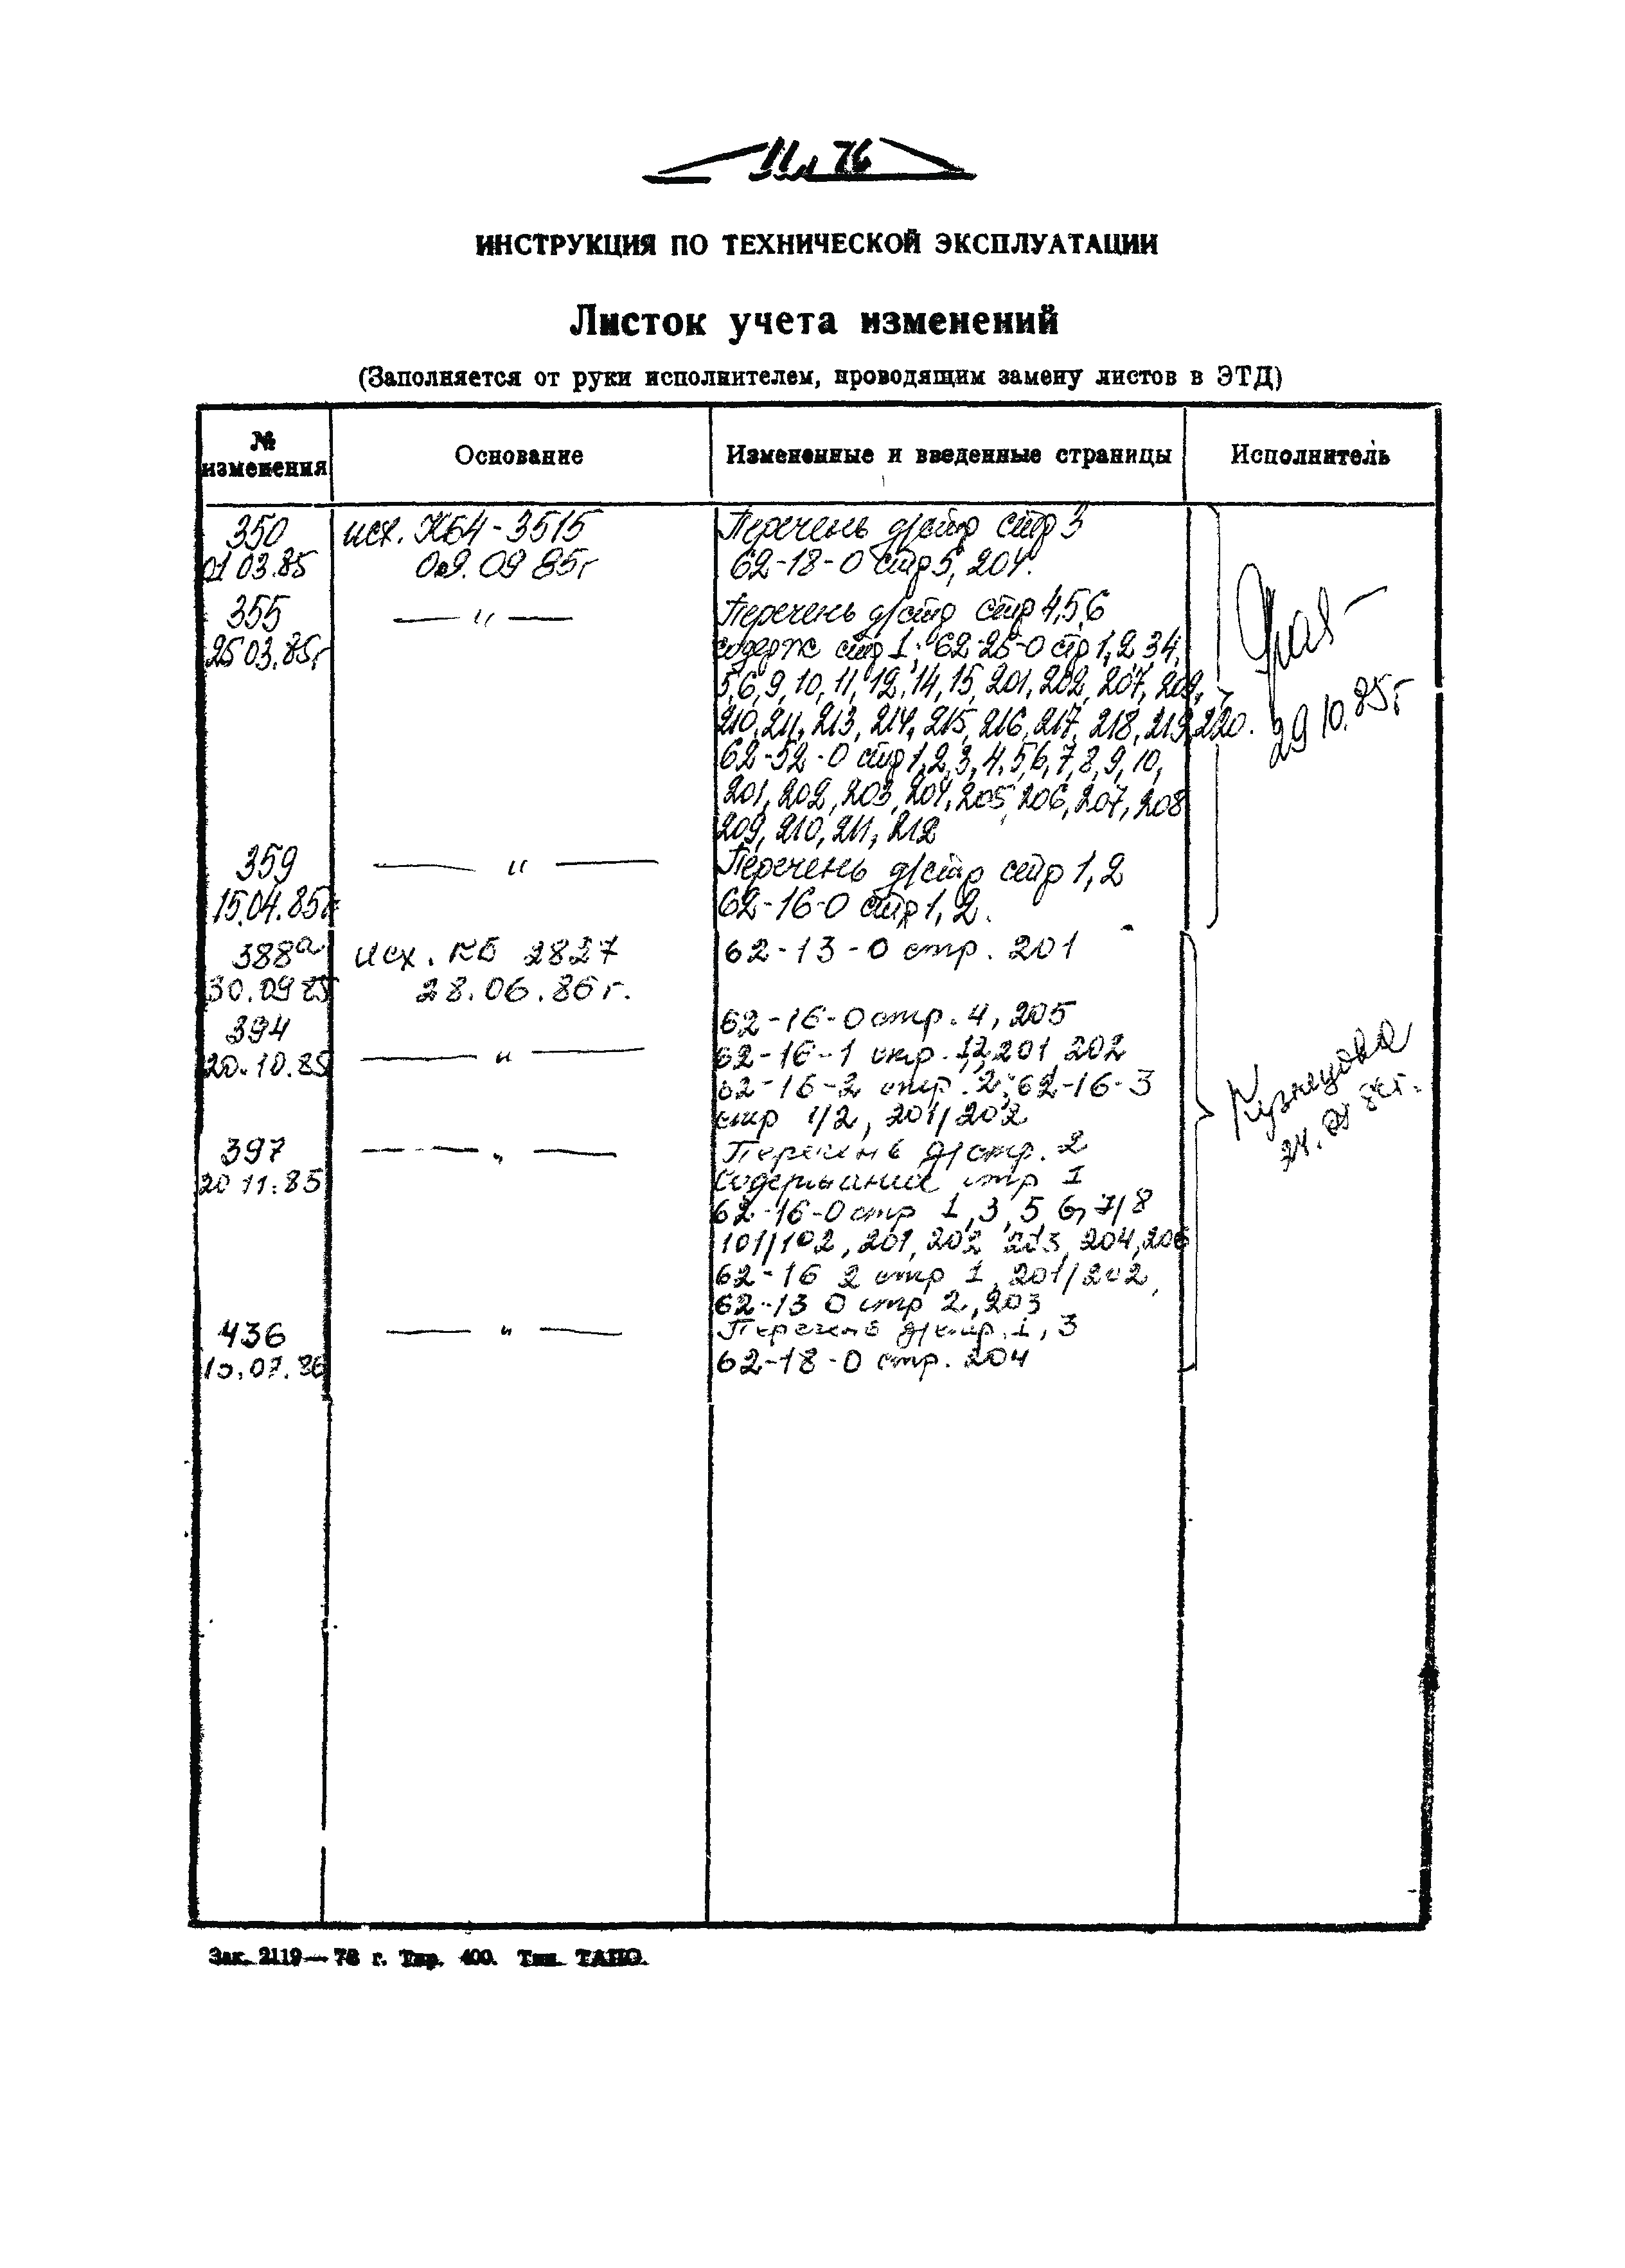 Ил 76
ИНСТРУКЦИЯ ПО ТЕХНИЧЕСКОЙ ЭКСПЛУАТАЦИИ
Листок учета изменений
(Заполняется от руки исполнителем, проводящим замену листов в ЭТД)
№ изменения
Основание
Измененные и введенные страницы
Исполнитель
350
исх. КБ4-3515
Перечень д/стр стр 3
01 03.85
09.09 85г
62-18-0 стр 5, 204.
355
— " —
Перечень д/стр стр 4,5,6
25 03.85г
содерж стр 1; 62-25-0 стр 1,2,3 4,
5,6,9,10,11,12,14,15,201,202,207,209,
210,211,213,214,215,216,217,218,219,220.
29 10.85г
62-52-0 стр 1,2,3,4,5,6,7,8,9,10,
201,202,203,204,205,206,207,208
209,210,211,212
359
— " —
Перечень д/стр стр 1,2
15.04.85г
62-16-0 стр 1,2.
388а
исх. КБ 2827
62-13-0 стр. 201
30.09 85
28.06.86г.
394
62-16-0 стр. 4, 205
20.10.85
— " —
62-16-1 стр. 1,2,201,202
62-16-2 стр. 2; 62-16-3
стр 1/2, 201/202
Кузнецова
397
— " —
Перечень д/стр. 2
20 11.85
Содержание стр 1
62-16-0 стр 1,3,5 6,7/8
101/102,201,202 203,204,206
62-16 2 стр 1, 201/202,
62-13 0 стр 2,203
436
— " —
Перечень д/стр. 1,3
07.86
62-18-0 стр. 204
Зак. 2119— 78 г. Тир. 400. Тип. ТАПО.